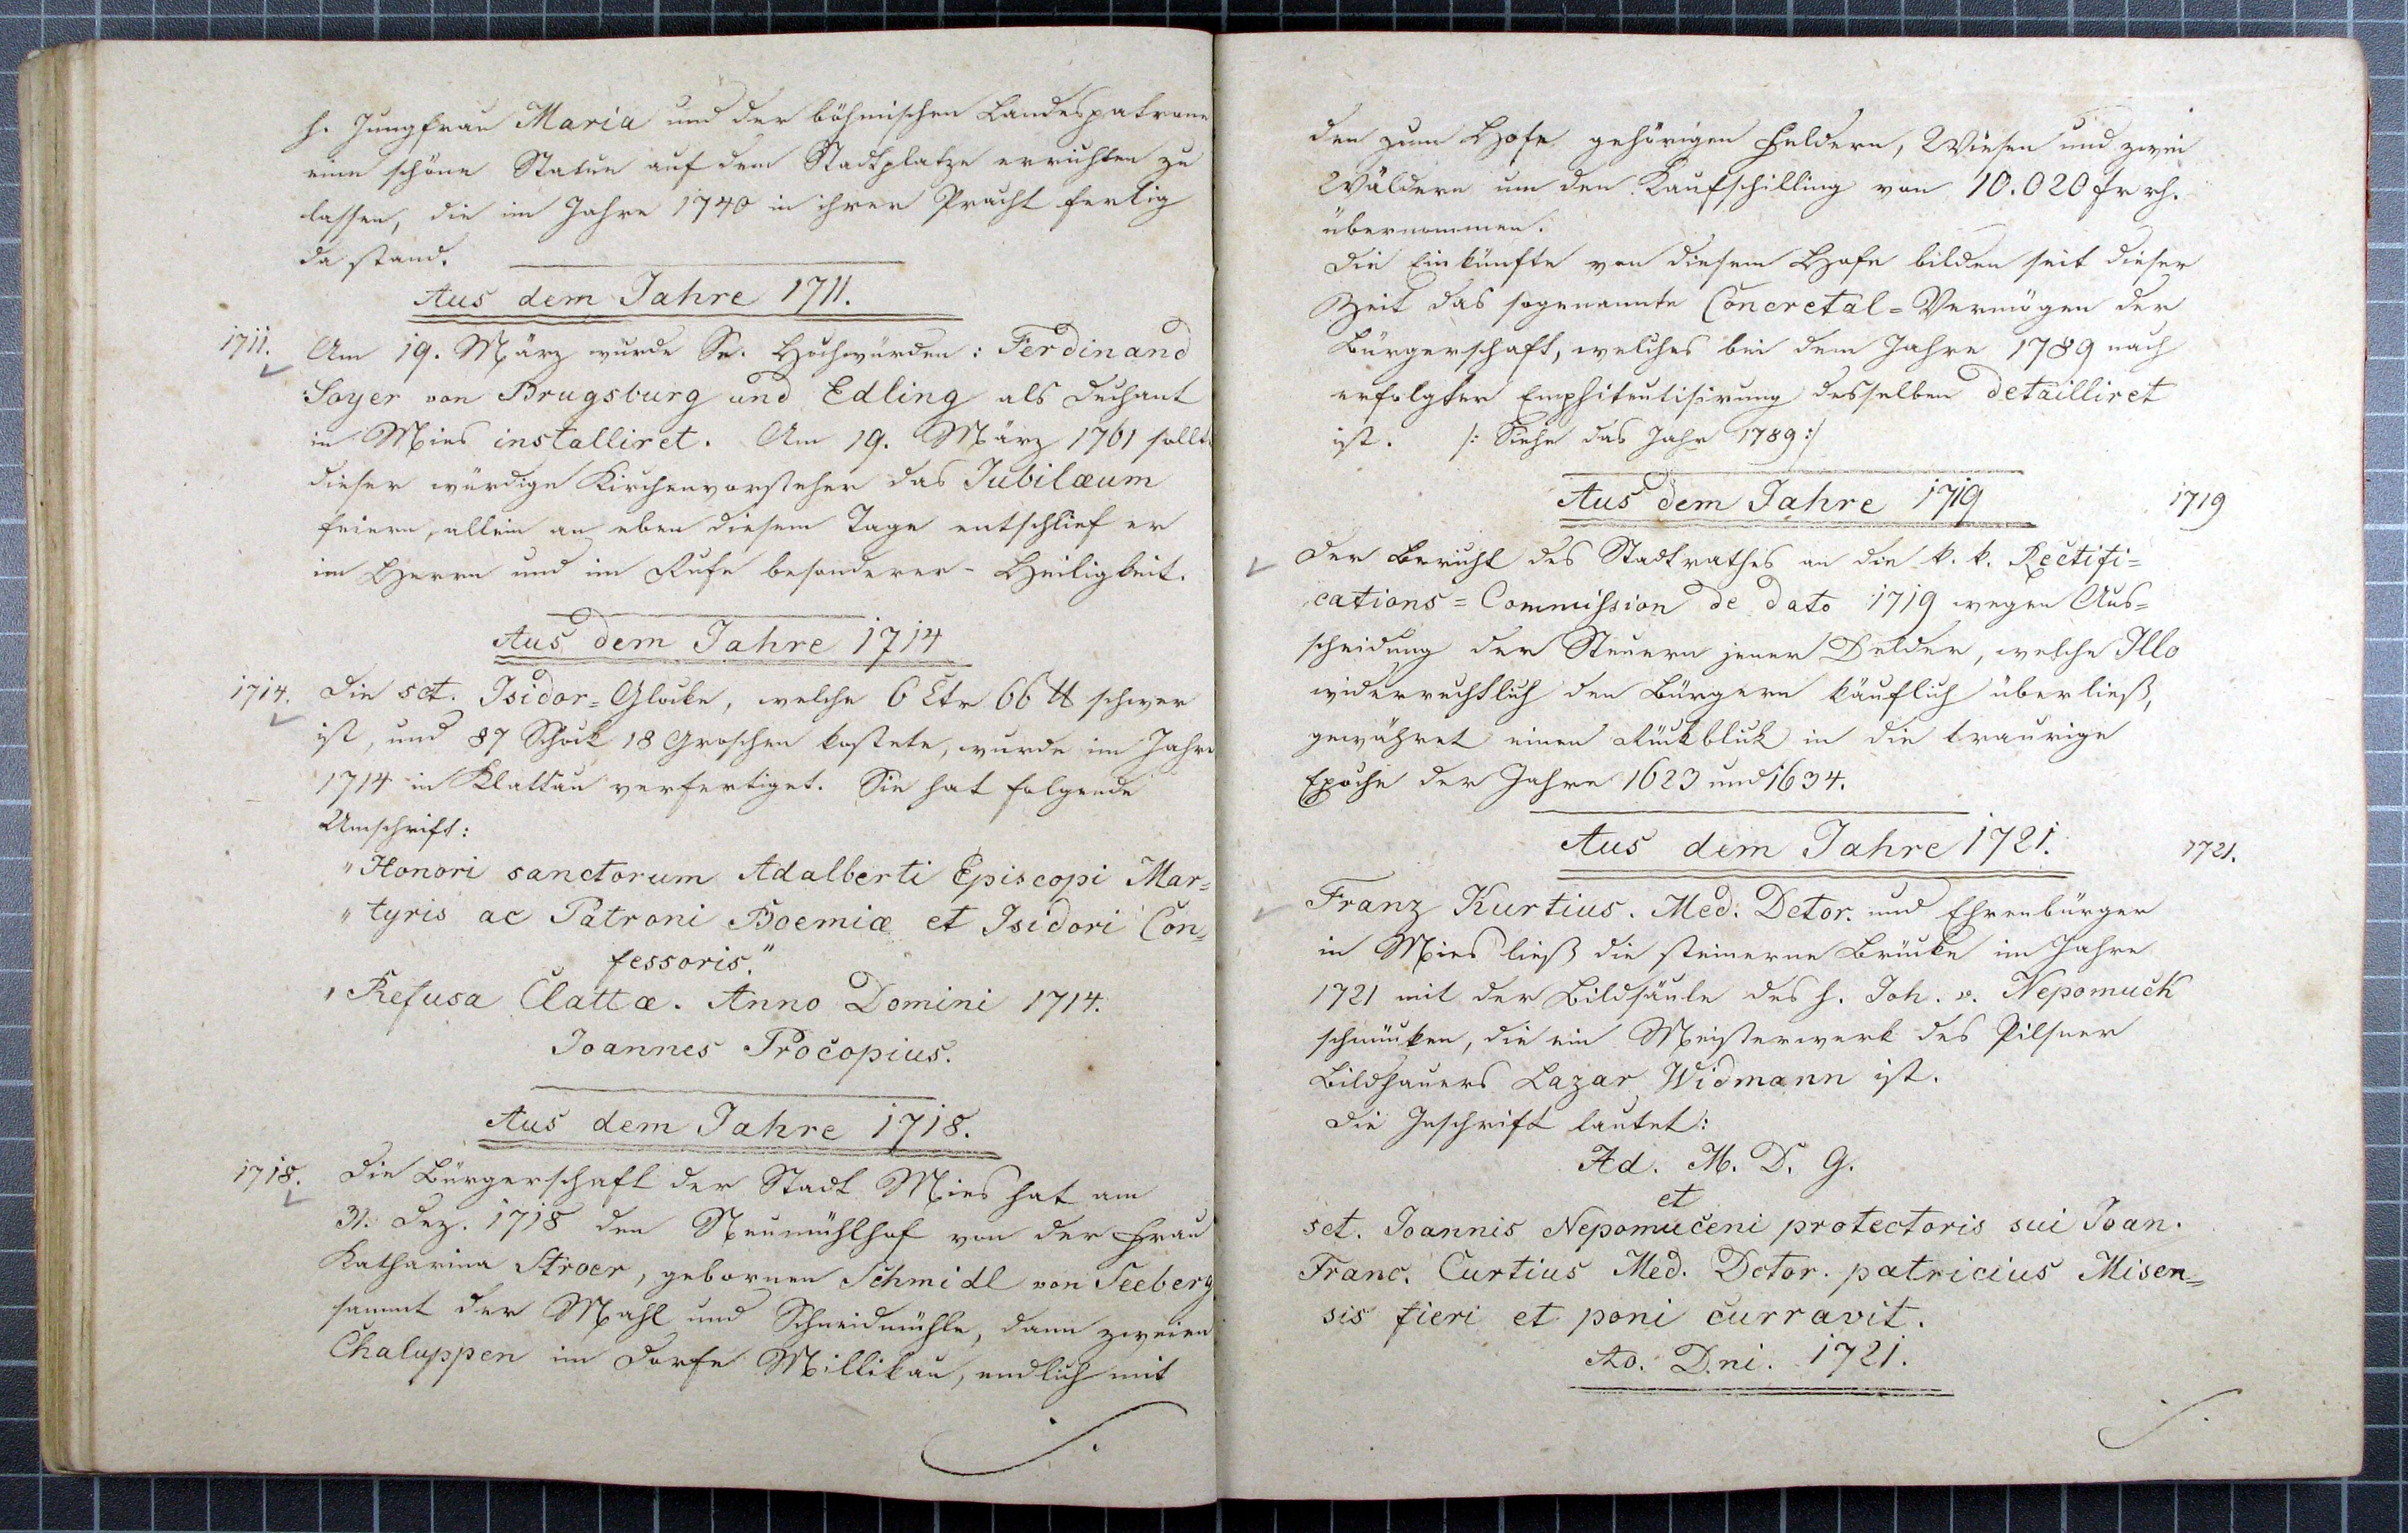 h. Jungfrau Maria und der böhmischen Landespatrone
eine schöne Statue auf dem Stadtplatze errichten zu
lassen, die im Jahre 1740 in ihrer Pracht fertig
da stand.
Aus dem Jahre 1711.
1711. Am 19. März wurde Se. Hochwürden: Ferdinand
Soyer von Brugsburg und Edling als Dechant
in Mies installiret. Am 19. März 1761 sollte
dieser würdige Kirchenvorsteher das Jubilæum
feiern, allein an eben diesem Tage entschlief er
im Herrn und im Rufe besonderer - Heiligkeit.
Aus dem Jahre 1714
1714. Die sct. Isidor=Glocke, welche 6 Ctr 66 ℔ schwer
ist, und 87 Schock 18 Groschen kostete, wurde im Jahre
1714 in Klattau verfertiget. Sie hat folgende
Umschrift:
"Honori sanctorum Adalberti Episcopi Mar=
"tyris ac Patroni Boemiæ et Isidori Con=
fessoris."
"Refusa Clattæ. Anno Domini 1714.
Joannes Procopius.
Aus dem Jahre 1718.
1718. Die Bürgerschaft der Stadt Mies hat am
31. Dez. 1718 den Neumühlhof von der Frau
Katharina Stroer, gebornen Schmidl von Seeberg
sammt der Mahl und Schneidmühle, dann zweien
Chaluppen im Dorfe Millikau, endlich mit
den zum Hofe gehörigen Feldern, Wiesen und zwei
Wäldern um den Kaufschilling von 10.020 fr rh.
übernommen.
Die Einkünfte von diesem Hofe bilden seit dieser
Zeit das sogenannte Concretal=Vermögen der
Bürgerschaft, welches bei dem Jahre 1789 nach
erfolgter Emphiteutisirung desselben detailliret
ist. /: Siehe das Jahr 1789 :/
Aus dem Jahre 1719
1719
Der Bericht des Stadtrathes an die k. k. Rectifi=
cations=Commission de dato 1719 wegen Aus=
scheidung der Steuern jener Felder, welche Illo
widerrechtlich den Bürgern käuflich überließ,
gewähret einen Rückblick in die traurige
Epoche der Jahre 1623 und 1634.
Aus dem Jahre 1721.
1721.
Franz Kurtius. Med. Dctor. und Ehrenbürger
in Mies ließ die steinerne Brücke im Jahre
1721 mit der Bildsäule des h. Joh. v. Nepomuck
schmücken, die ein Meisterwerk des Pilsner
Bildhauers Lazar Widmann ist.
Die Inschrift lautet:
Ad. M. D. G.
et
sct. Joannis Nepomuceni protectoris sui Joan.
Franc. Curtius Med. Dctor. patricius Misen=
sis fieri et poni curravit.
Ao. D.ni. 1721.